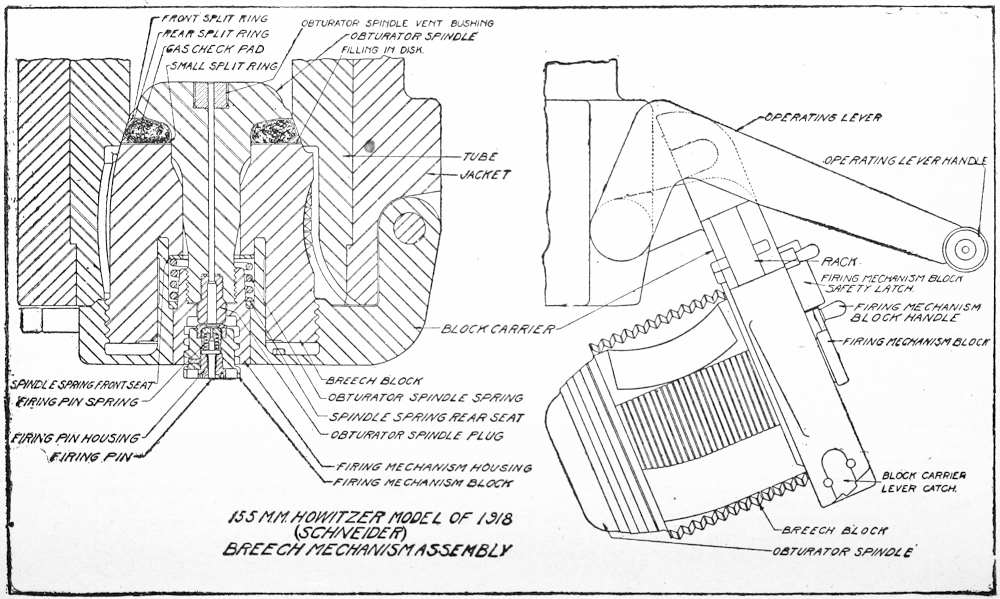 FRONT SPLIT RING
REAR SPLIT RING
GAS CHECK PAD
SMALL SPLIT RING
OBTURATOR SPINDLE VENT BUSHING
OBTURATOR SPINDLE
FILLING IN DISK.
TUBE
JACKET
BLOCK CARRIER
SPINDLE SPRING FRONT SEAT
FIRING PIN SPRING
FIRING PIN HOUSING
FIRING PIN
BREECH BLOCK
OBTURATOR SPINDLE SPRING
SPINDLE SPRING REAR SEAT
OBTURATOR SPINDLE PLUG
FIRING MECHANISM HOUSING
FIRING MECHANISM BLOCK
OPERATING LEVER
OPERATING LEVER HANDLE
RACK
FIRING MECHANISM BLOCK
SAFETY LATCH.
FIRING MECHANISM
BLOCK HANDLE
FIRING MECHANISM BLOCK
BLOCK CARRIER
LEVER CATCH.
BREECH BLOCK
OBTURATOR SPINDLE
155 M.M. HOWITZER MODEL OF 1918
(SCHNEIDER)
BREECH MECHANISM ASSEMBLY